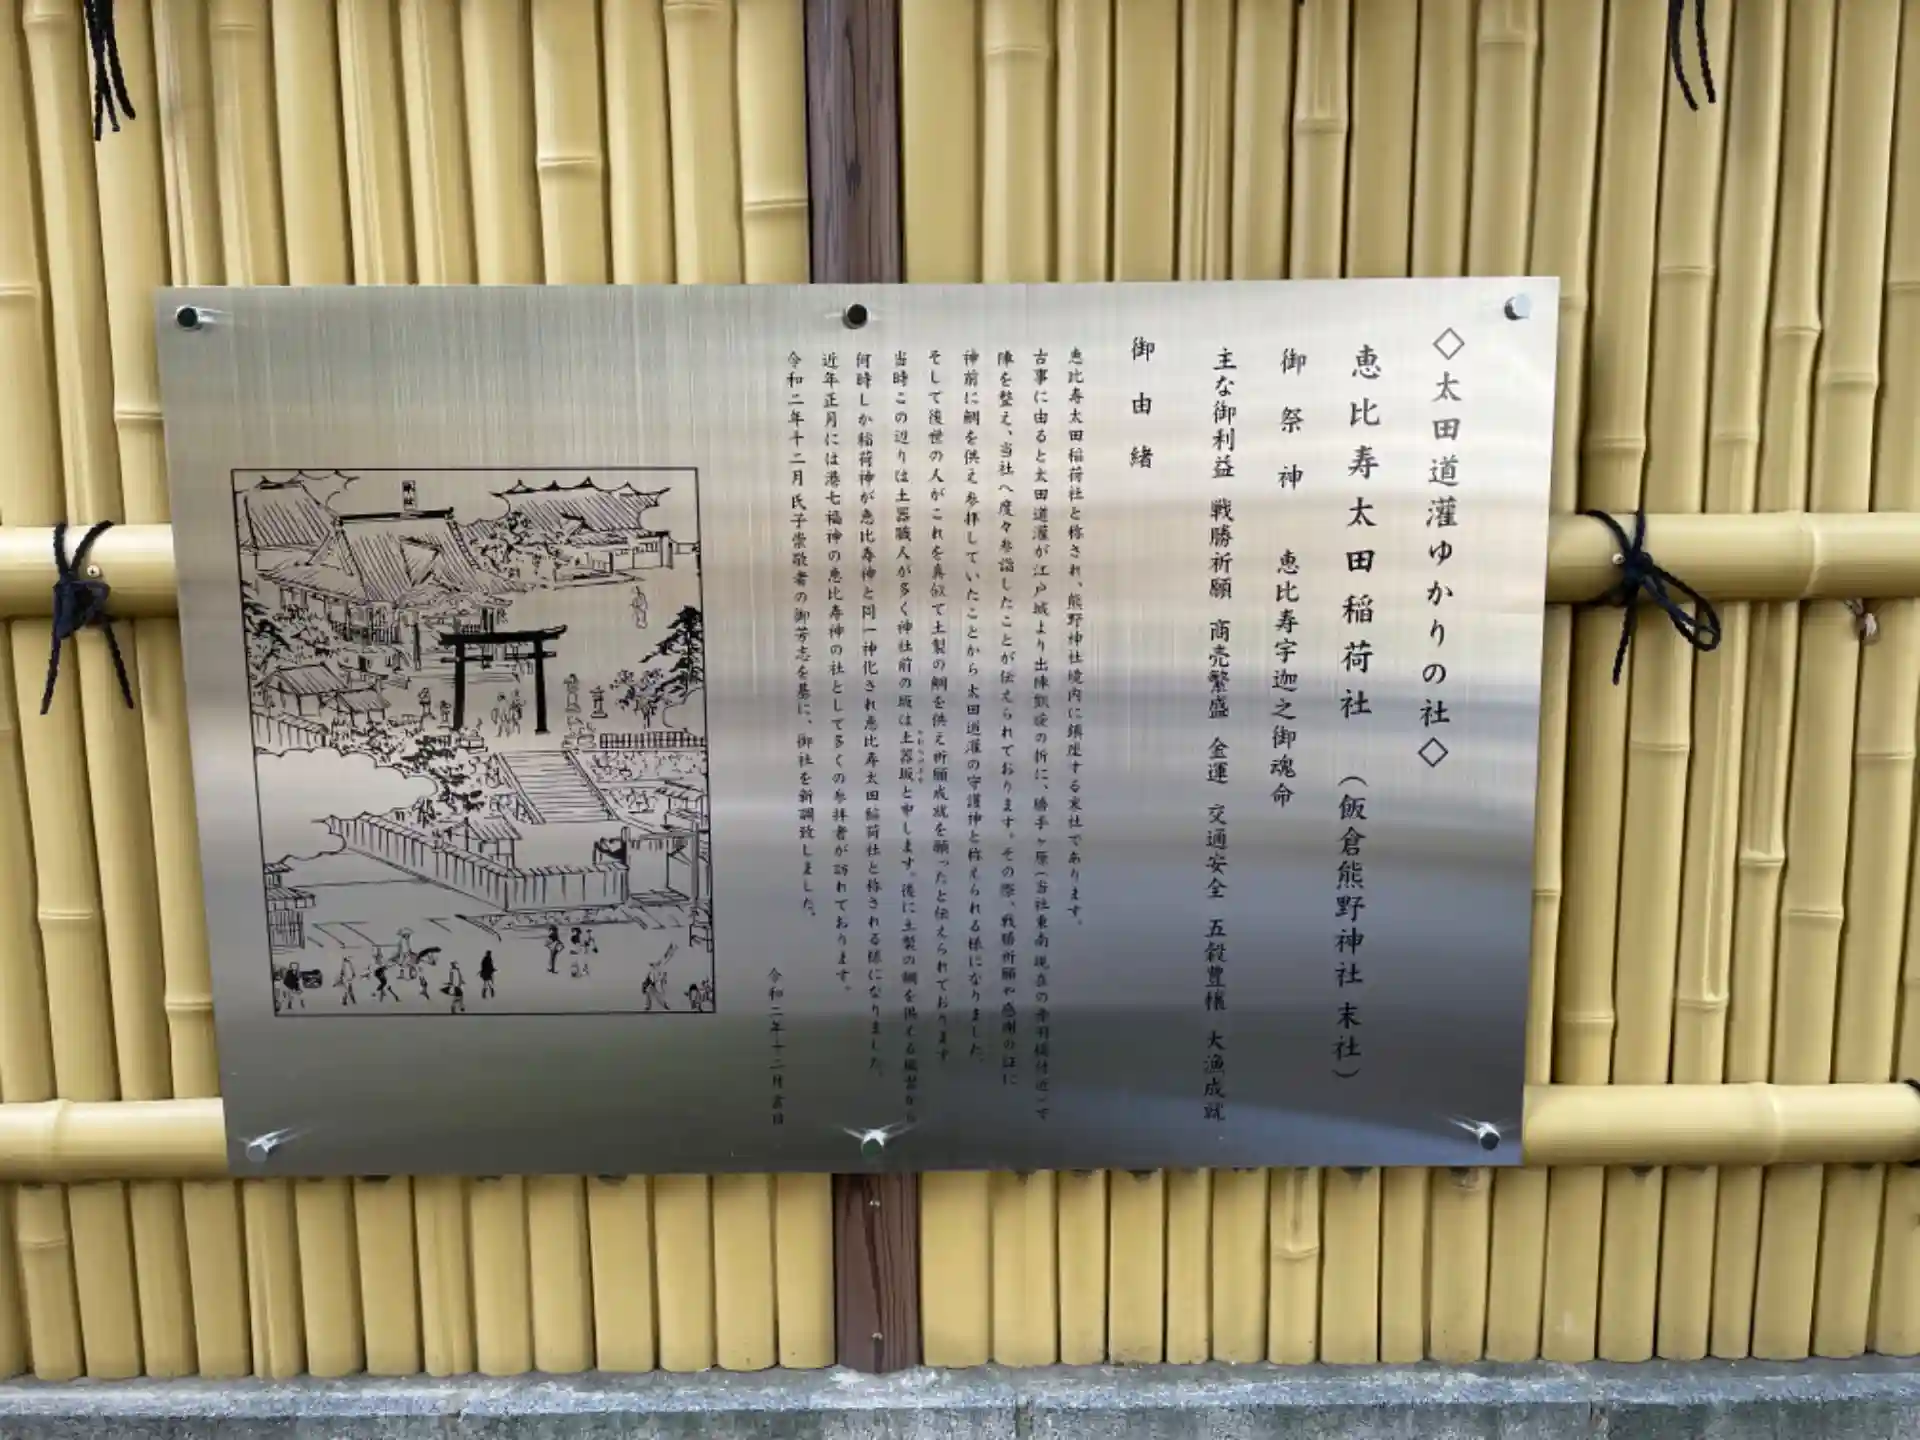 ◇太田道灌ゆかりの社◇
恵比寿太田稲荷社 （飯倉熊野神社 末社）
御祭神 恵比寿宇迦之御魂命
主な御利益 戦勝祈願 商売繁盛 金運 交通安全 五穀豊穣 大漁成就
御由緒
恵比寿太田稲荷社と称され、熊野神社境内に鎮座する末社であります。
古事に由ると太田道灌が江戸城より出陣凱旋の折に、勝手ヶ原（当社東南現在の赤羽橋付近）で
陣を整え、当社へ度々参詣したことが伝えられております。その際、戦勝祈願や感謝の証に
神前に鯛を供え参拝していたことから太田道灌の守護神と称えられる様になりました。
そして後世の人がこれを真似て土製の鯛を供え祈願成就を願ったと伝えられております
当時この辺りは土器職人が多く神社前の坂は土器坂と申します。後に土製の鯛を供える風習から
何時しか稲荷神が恵比寿神と同一神化され恵比寿太田稲荷社と称される様になりました。
近年正月には港七福神の恵比寿神の社として多くの参拝者が訪れております。
令和二年十二月氏子崇敬者の御芳志を基に、御社を新調致しました。
令和二年十二月吉日